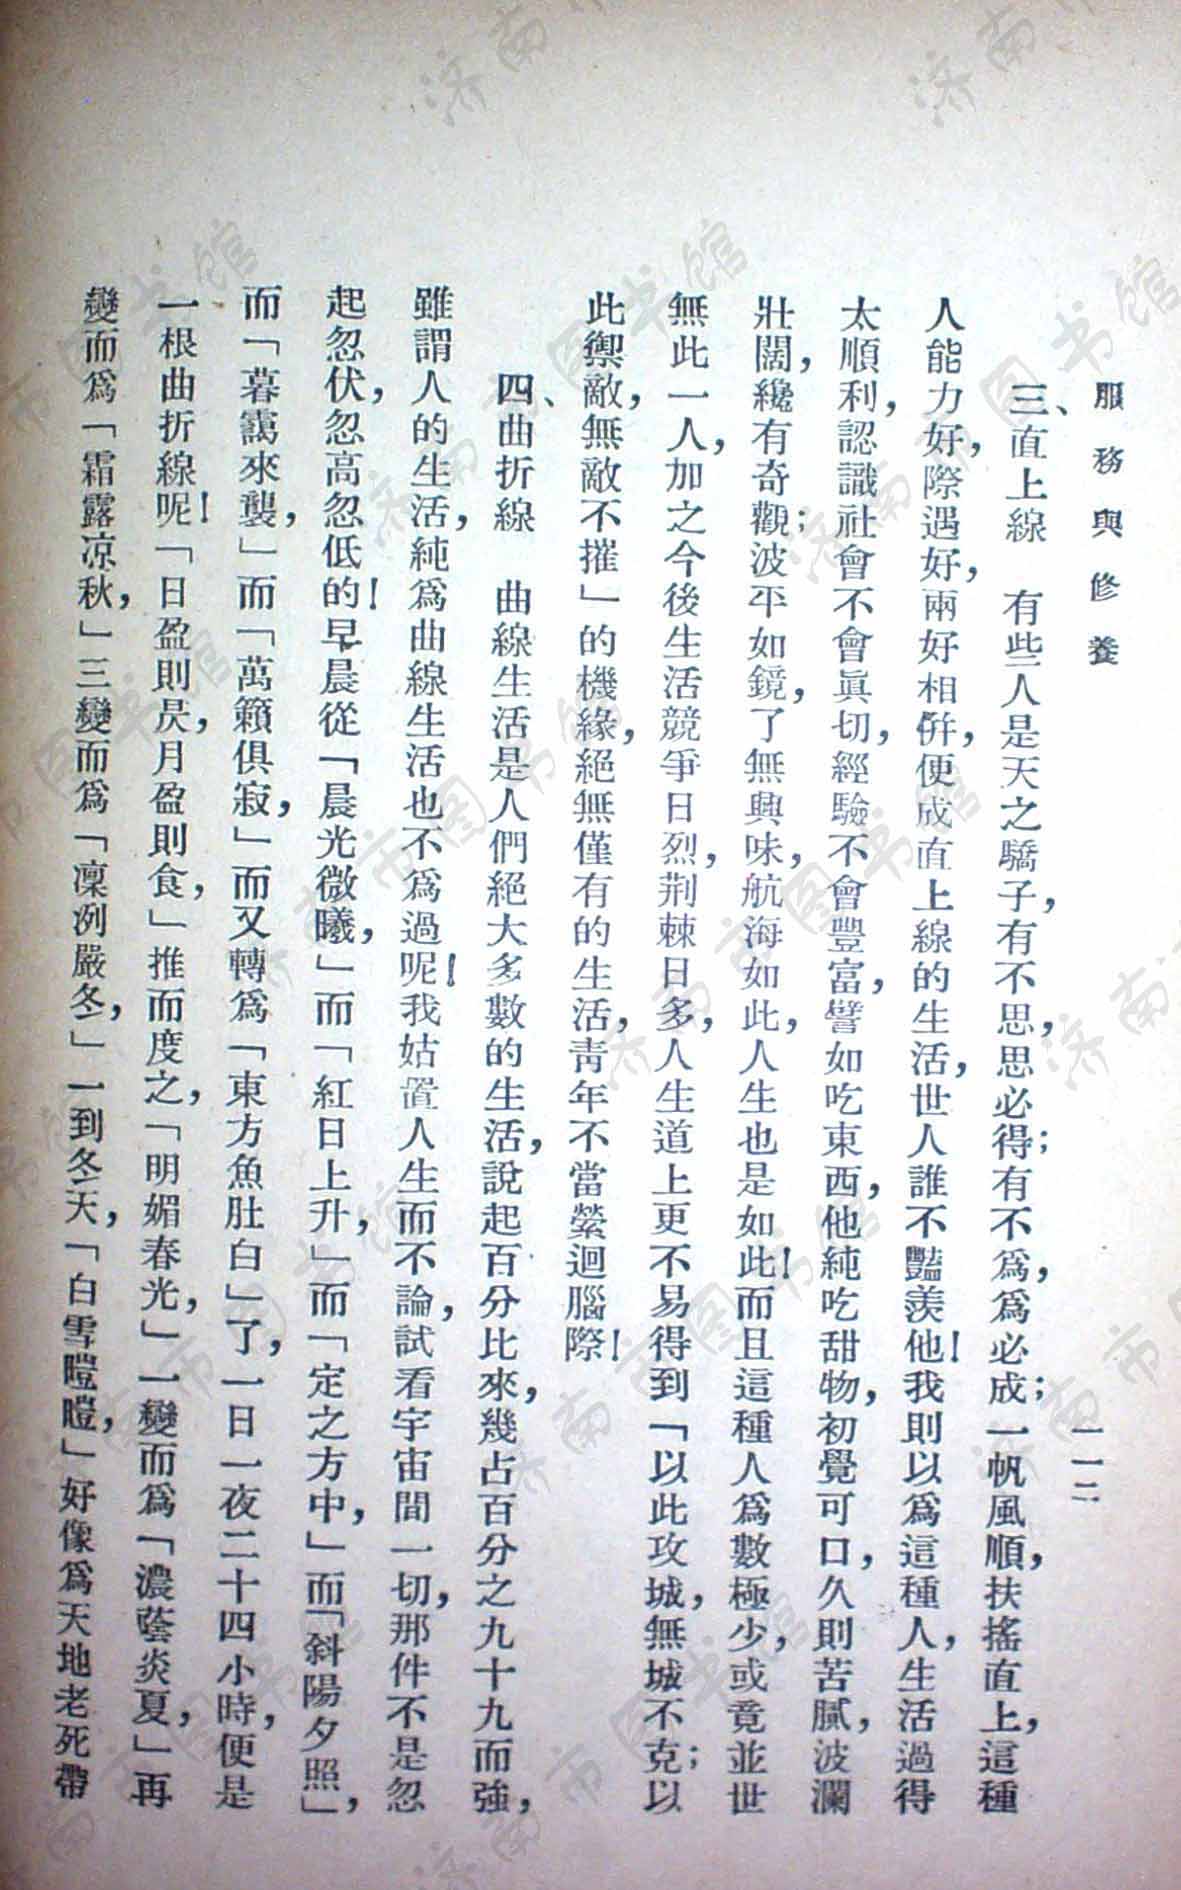 服務與修養
一一二
三、直上線　有些人是天之驕子，有不思，思必得；有不爲，爲必成；一帆風順，扶搖直上，這種
人能力好，際遇好，兩好相併，便成直上線的生活，世人誰不豔羨他！我則以爲這種人，生活過得
太順利，認識社會不會眞切，經驗不會豐富，譬如吃東西，他純吃甜物，初覺可口，久則苦膩，波瀾
壯闊，纔有奇觀；波平如鏡，了無興味，航海如此，人生也是如此！而且這種人爲數極少，或竟並世
無此一人，加之今後生活競爭日烈，荆棘日多，人生道上更不易得到「以此攻城，無城不克；以
此禦敵，無敵不摧」的機緣，絕無僅有的生活，靑年不當縈迴腦際！
四、曲折線　曲線生活是人們絕大多數的生活，說起百分比來，幾占百分之九十九而強，
雖謂人的生活，純爲曲線生活也不爲過呢！我姑置人生而不論，試看宇宙間一切，那件不是忽
起忽伏，忽高忽低的！早晨從「晨光微曦，」而「紅日上升，」而「定之方中，」而「斜陽夕照」，
而「暮靄來襲，」而「萬籟俱寂，」而又轉爲「東方魚肚白」了，一日一夜二十四小時，便是
一根曲折線呢！「日盈則昃，月盈則食，」推而度之，「明媚春光，」一變而爲「濃蔭炎夏，」再
變而爲「霜露凉秋，」三變而爲「凜冽嚴冬，」一到冬天，「白雪皚皚，」好像爲天地老死帶
济南市图书馆